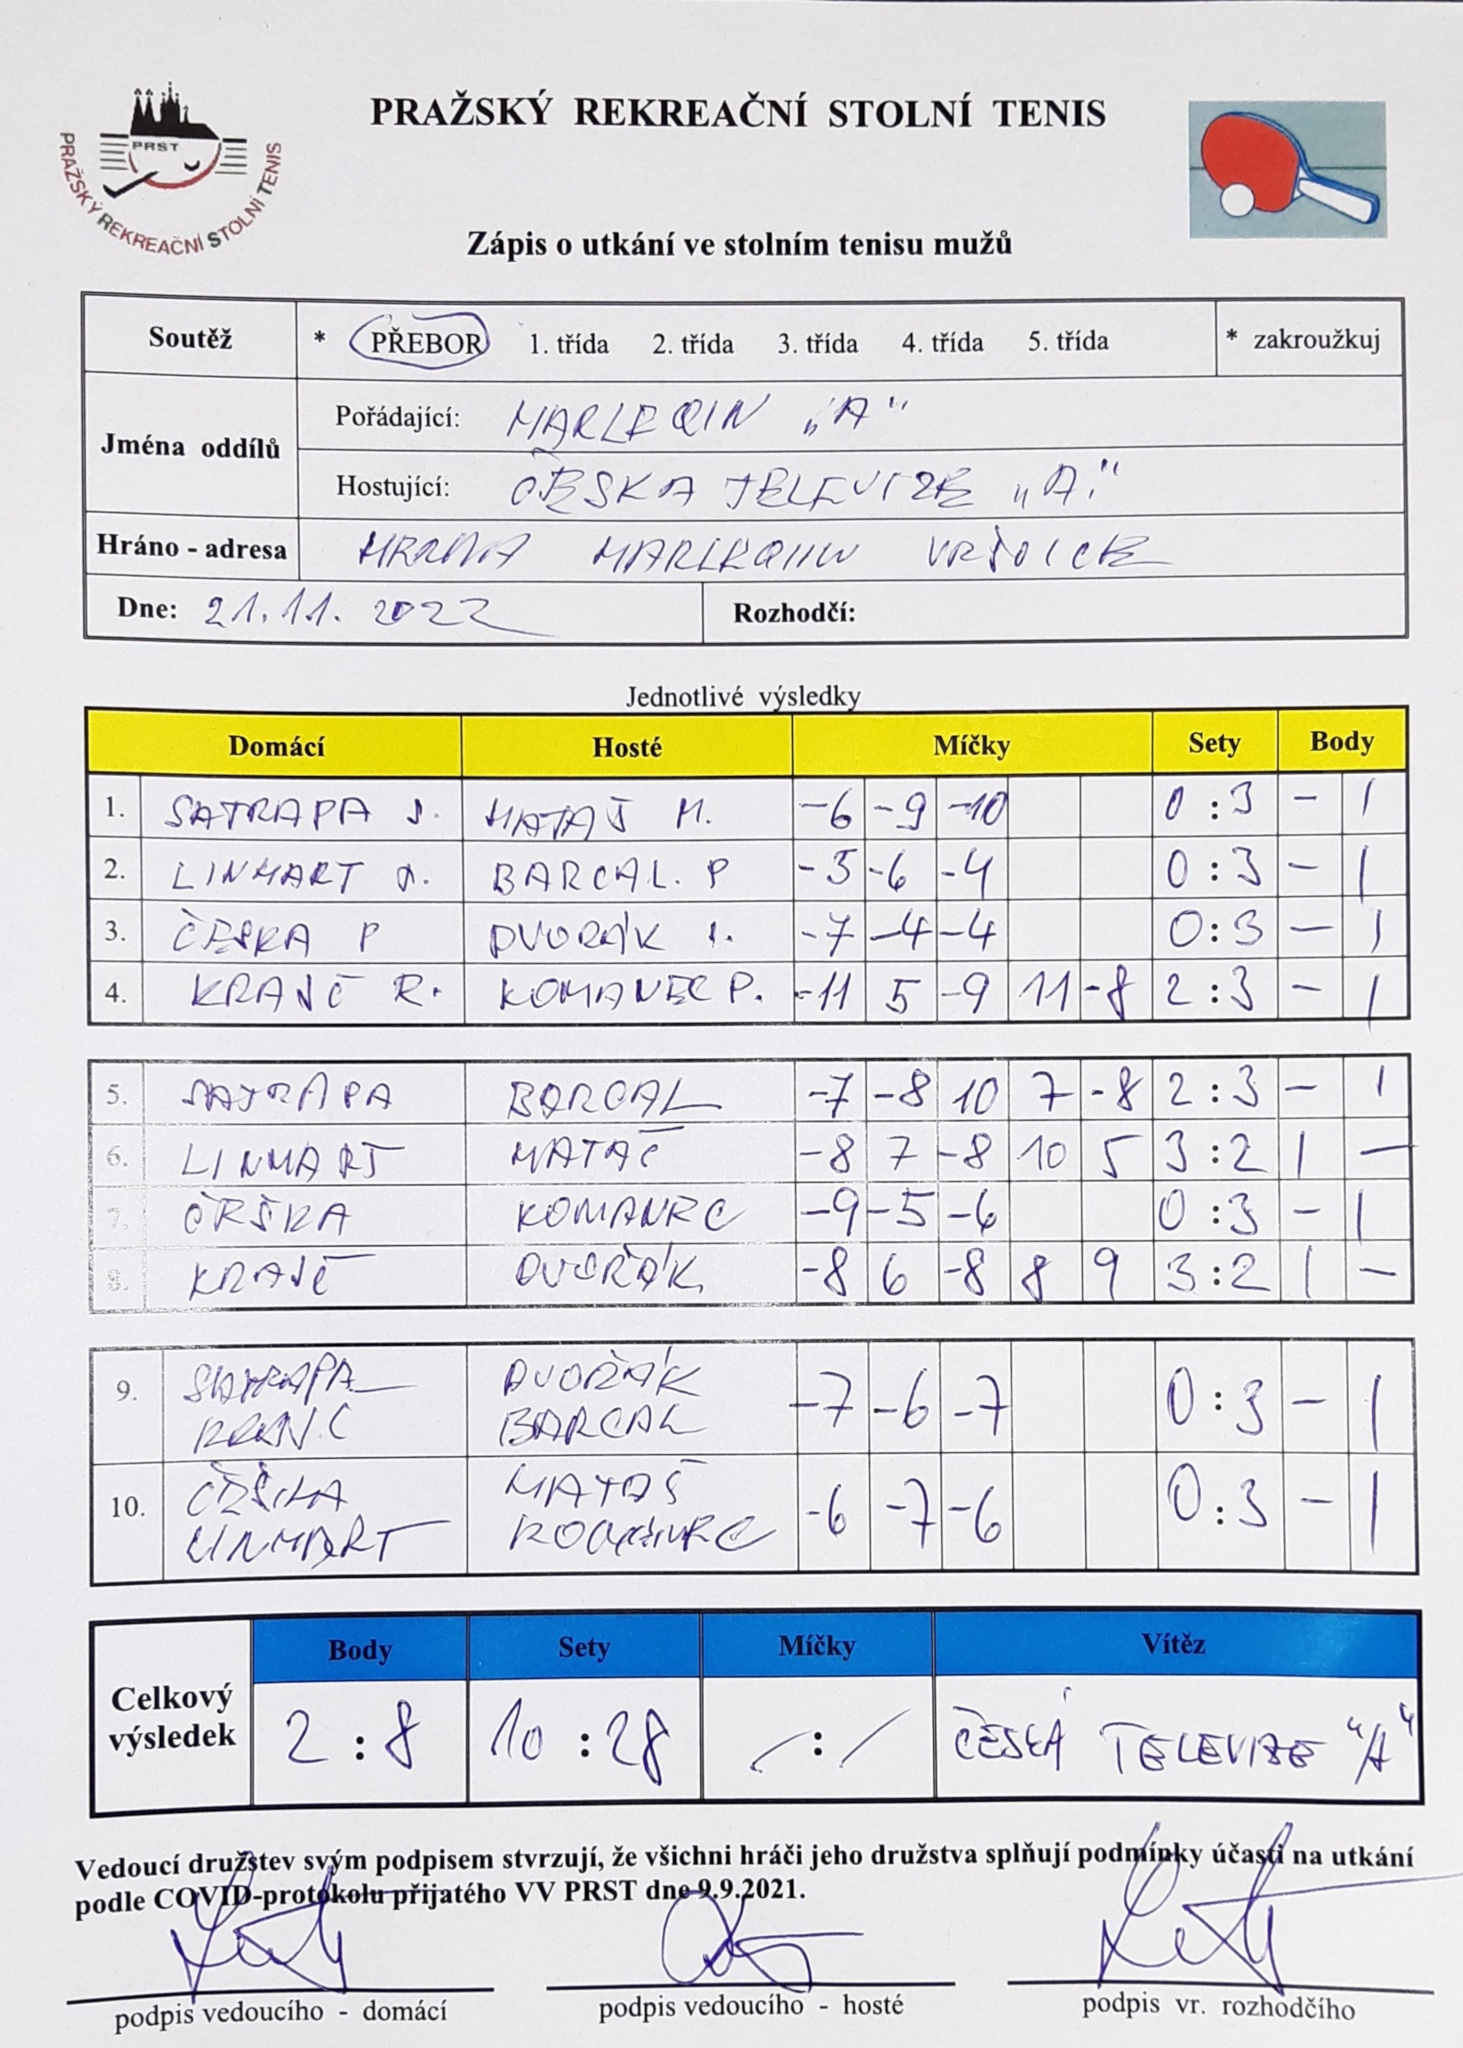 PRAŽSKÝ REKREAČNÍ STOLNÍ TENIS
PRST
PRAŽSKÝ REKREAČNÍ STOLNÍ TENIS
Zápis o utkání ve stolním tenisu mužů
Soutěž * PŘEBOR 1. třída 2. třída 3. třída 4. třída 5. třída * zakroužkuj
Jména oddílů
Pořádající: HARLEQIN „A"
Hostující: ČESKA TELEVIZE „A."
Hráno - adresa HERNA HARLEQIN VRŠOVICE
Dne: 21.11. 2022 Rozhodčí:
Jednotlivé výsledky
Domácí Hosté Míčky Sety Body
1. SATRAPA J. MATAŠ M. -6 -9 -10 0 : 3 - 1
2. LINHART BARCAL. P -5 -6 -4 0 : 3 - 1
3. ČEŠKA P DVOŘÁK -7 -4 -4 0 : 3 - 1
4. KRAJČ R. KOMANEC P. -11 5 -9 11 -8 2 : 3 - 1
5. SATRAPA BARCAL -7 -8 10 7 -8 2 : 3 - 1
6. LINHART MATAŠ -8 7 -8 10 5 3 : 2 1 -
7. ČEŠKA KOMANEC -9 -5 -6 0 : 3 - 1
8. KRAJČ DVOŘÁK -8 6 -8 8 9 3 : 2 1 -
9. SATRAPA DVOŘÁK -7 -6 -7 0 : 3 - 1
KRAJČ BARCAL
10. ČEŠKA MATAŠ -6 -7 -6 0 : 3 - 1
LINHART KOMANEC
Body Sety Míčky Vítěz
Celkový výsledek 2 : 8 10 : 28 / : / ČESKÁ TELEVIZE "A"
Vedoucí družstev svým podpisem stvrzují, že všichni hráči jeho družstva splňují podmínky účasti na utkání
podle COVID-protokolu přijatého VV PRST dne 9.9.2021.
podpis vedoucího - domácí podpis vedoucího - hosté podpis vr. rozhodčího